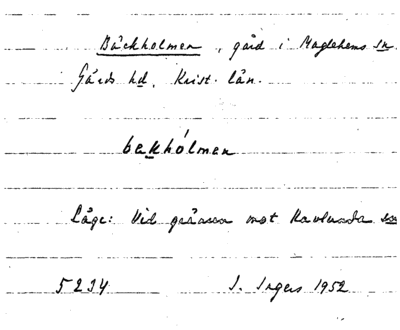 Bäckholmen, gård i Maglehems sn.
Gärds hd, Krist. län.
bękhólmen
Läge: Vid gränsen mot Ravlunda sn
5234 I. Ingers 1952